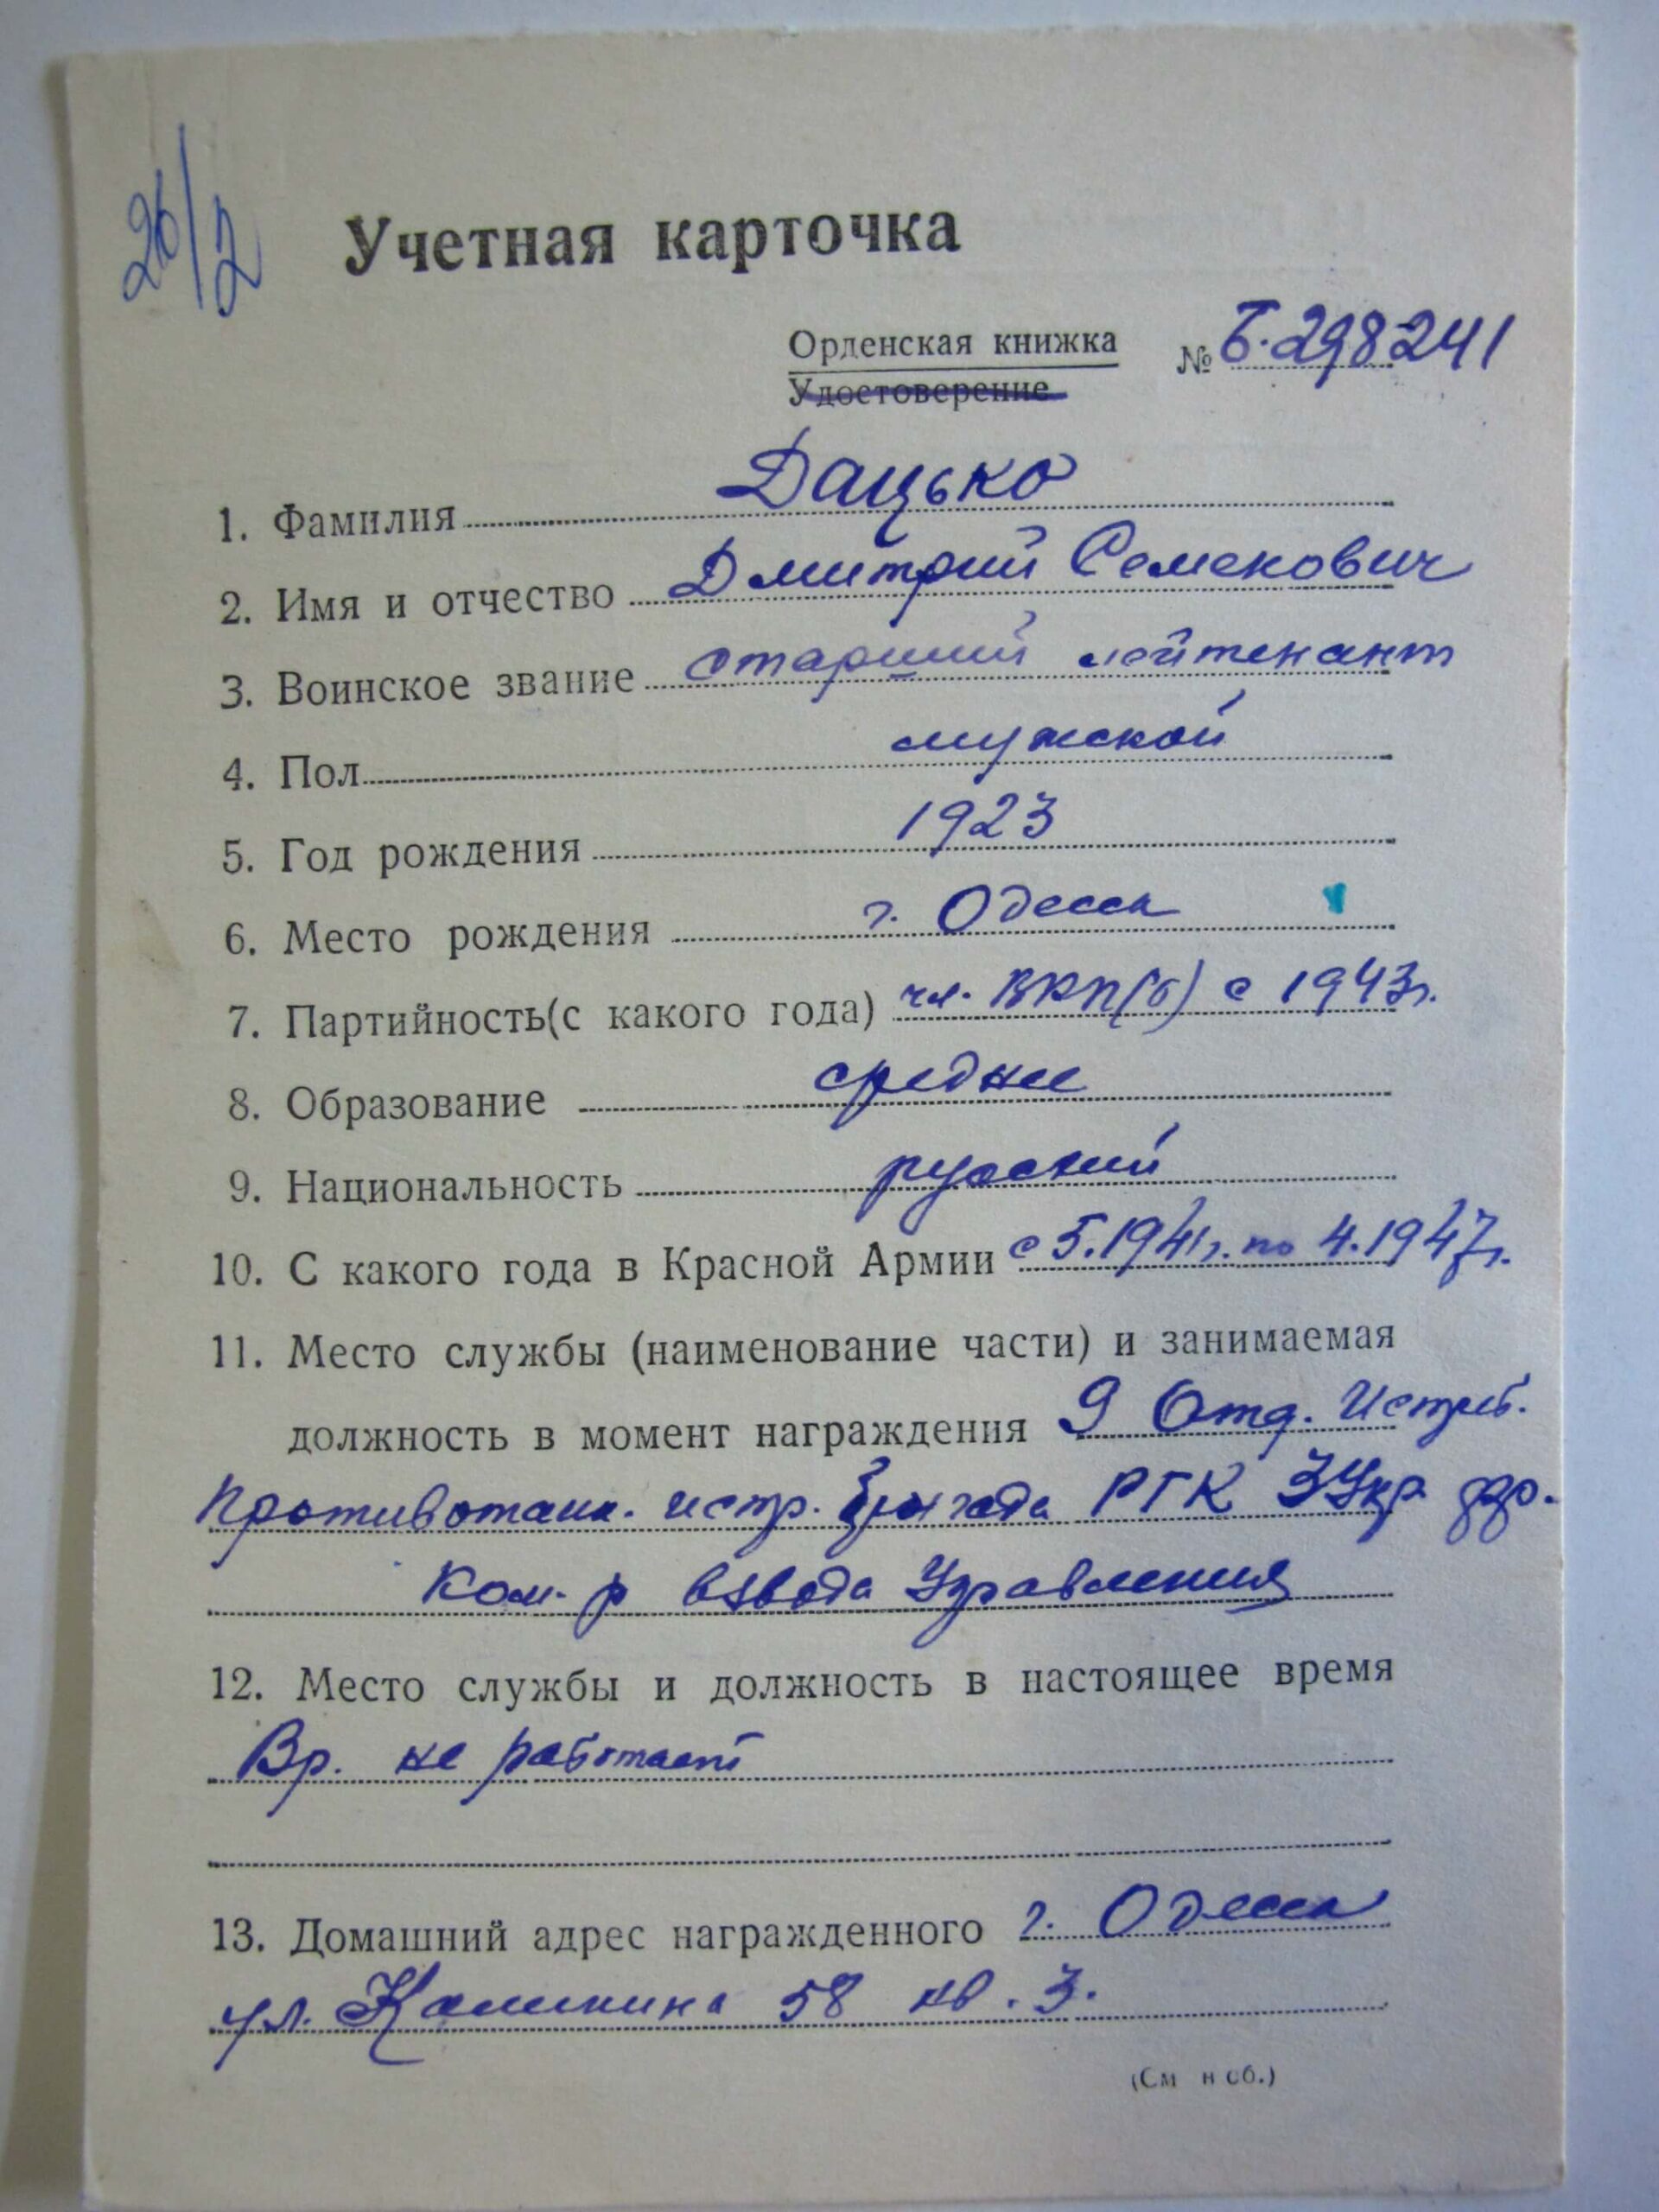 26/2
Учетная карточка
Орденская книжка № Б-298241
Удостоверение
1. Фамилия Дацько
2. Имя и отчество Дмитрий Семенович
3. Воинское звание старший лейтенант
4. Пол мужской
5. Год рождения 1923
6. Место рождения г. Одесса
7. Партийность(с какого года) чл. ВКП(б) с 1943г.
8. Образование среднее
9. Национальность русский
10. С какого года в Красной Армии с 5.1941г. по 4.1947г.
11. Место службы (наименование части) и занимаемая
должность в момент награждения 9 Отд. Истреб.
Противотанк. истр. бригада РГК 3 Укр. фр.
Ком-р взвода Управления
12. Место службы и должность в настоящее время
Вр. не работает
13. Домашний адрес награжденного г. Одесса
ул. Калинина 58 кв. 3.
(См н об.)